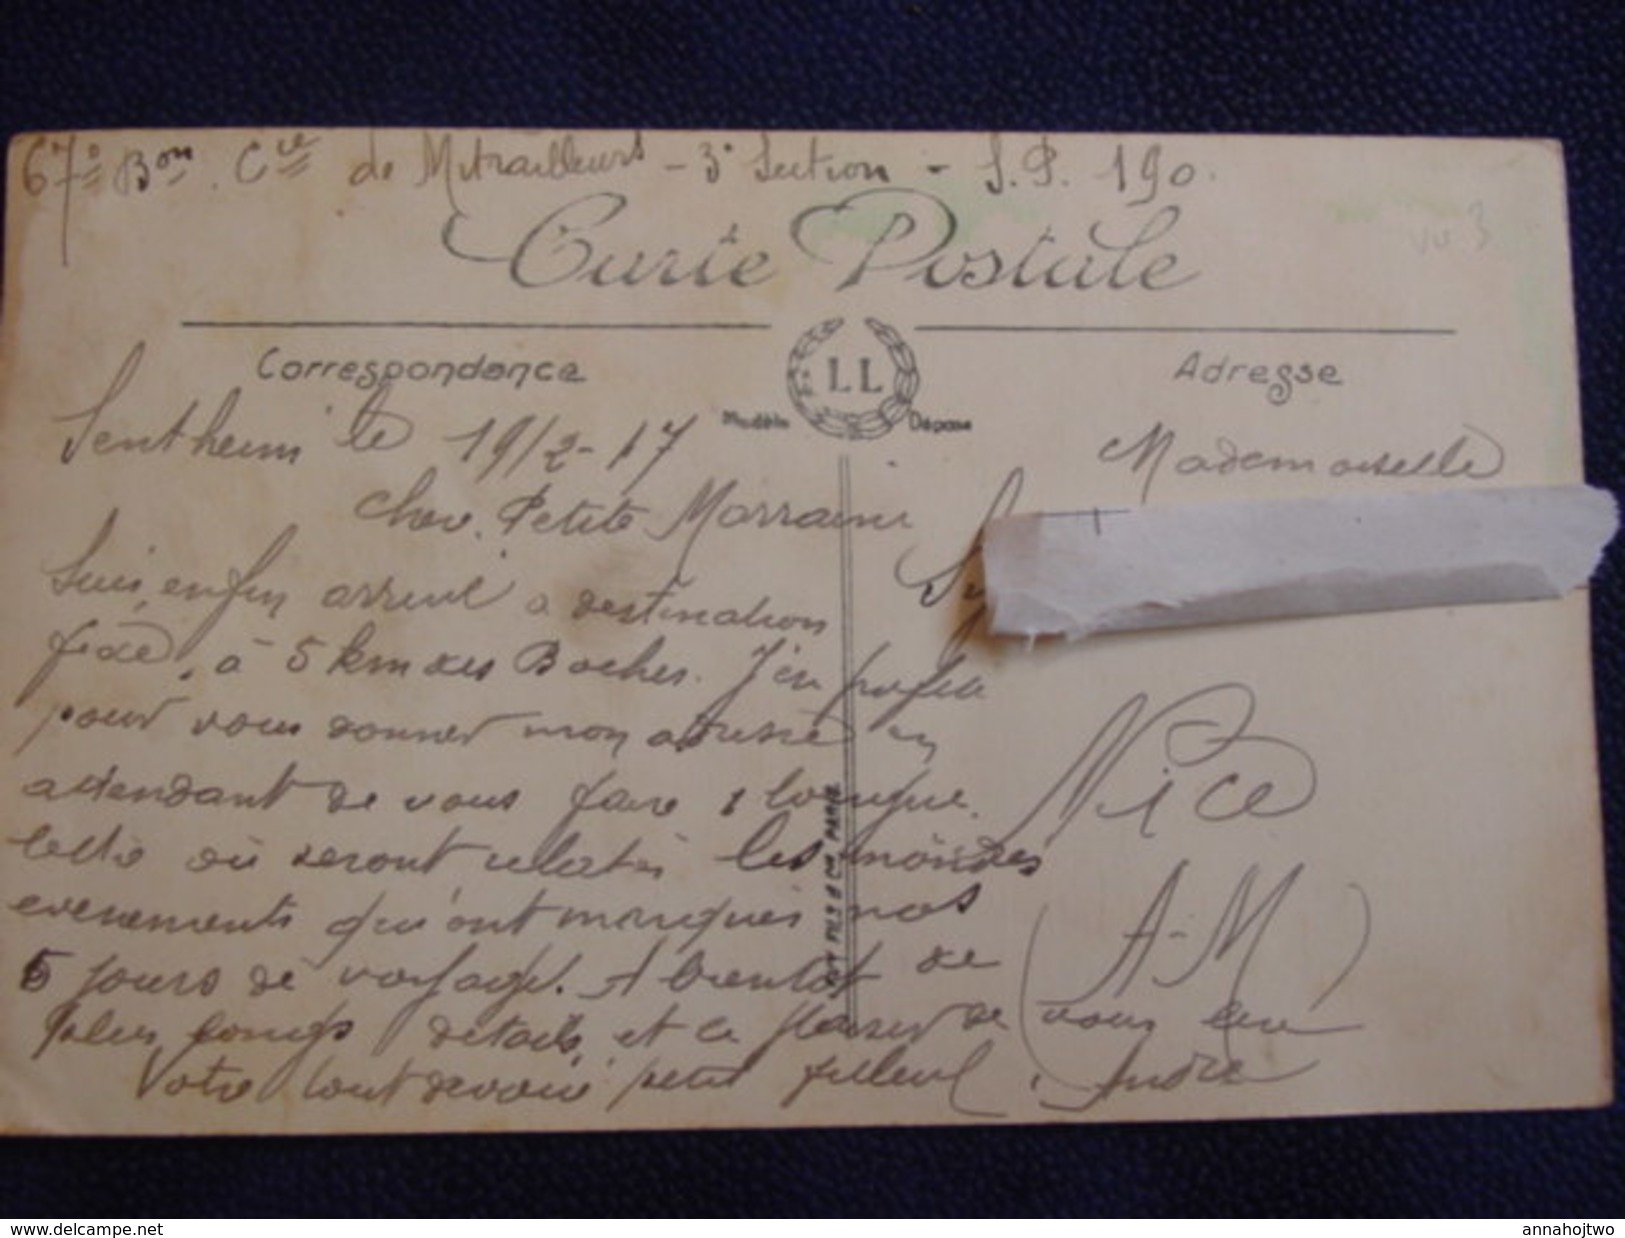 67º Bon. Cie de Mitrailleurs - 3º Section - S.P. 190.
Carte Postale
Correspondance
LL
Modèle Déposé
Adresse
Sentheim le 19/2-17
Mademoiselle
Petite Marraine
Suis enfin arrivé à destination
fixée, à 5 km des Boches. J'en profite
pour vous donner mon adresse en
attendant de vous faire 1 longue
lettre où seront relatés les moindres
évènements qui ont marqués nos
5 jours de voyage. A bientôt de
plus longs détails, et le plaisir de vous lire
Votre tout dévoué petit filleul, André
Nice
(A-M)
www.delcampe.net
annahojtwo